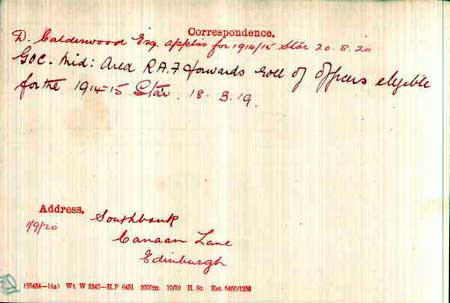 Correspondence.
D. Calderwood Esq. applies for 1914/15 Star 20.8.20
GOC. Mid: Area R.A.F forwards roll of officers eligible
for the 1914-15 Star. 18.3.19.
Address.
1/9/20
Southbank
Canaan Lane
Edinburgh
Wt. W 5347—H.P 6451 2000m. 10/19 H. St. Est. 6460/1250